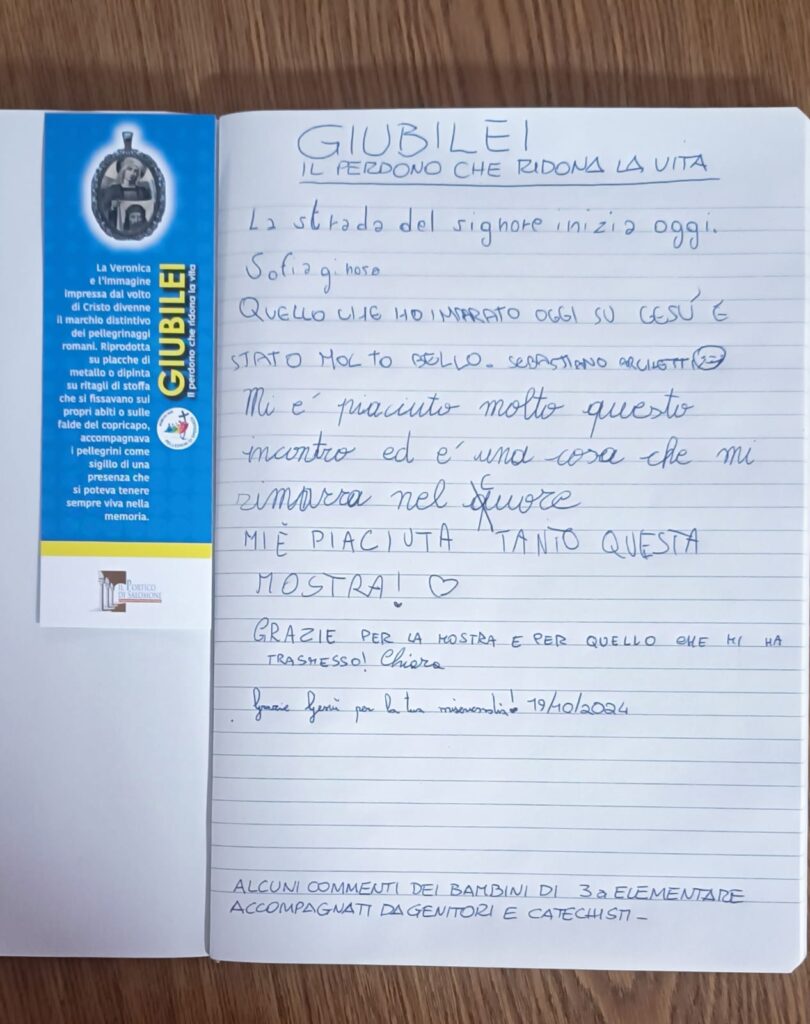 La Veronica
e l'immagine
impressa dal volto
di Cristo divenne
il marchio distintivo
dei pellegrinaggi
romani. Riprodotta
su placche di
metallo o dipinta
su ritagli di stoffa
che si fissavano sui
propri abiti o sulle
falde del copricapo,
accompagnava
i pellegrini come
sigillo di una
presenza che
si poteva tenere
sempre viva nella
memoria.
GIUBILEI
Il perdono che ridona la vita
IL PORTICO
DI SALOMONE
GIUBILEI
IL PERDONO CHE RIDONA LA VITA
La strada del signore inizia oggi.
Sofia
QUELLO CHE HO IMPARATO OGGI SU GESÙ È
STATO MOLTO BELLO. SEBASTIANO ARCHETTI
Mi e' piaciuto molto questo
incontro ed e' una cosa che mi
rimarra nel cuore
MI È PIACIUTA TANTO QUESTA
MOSTRA! ♡
GRAZIE PER LA MOSTRA E PER QUELLO CHE MI HA
TRASMESSO! Chiara
Grazie Gesù per la tua misericordia! 19/10/2024
ALCUNI COMMENTI DEI BAMBINI DI 3a ELEMENTARE
ACCOMPAGNATI DA GENITORI E CATECHISTI -